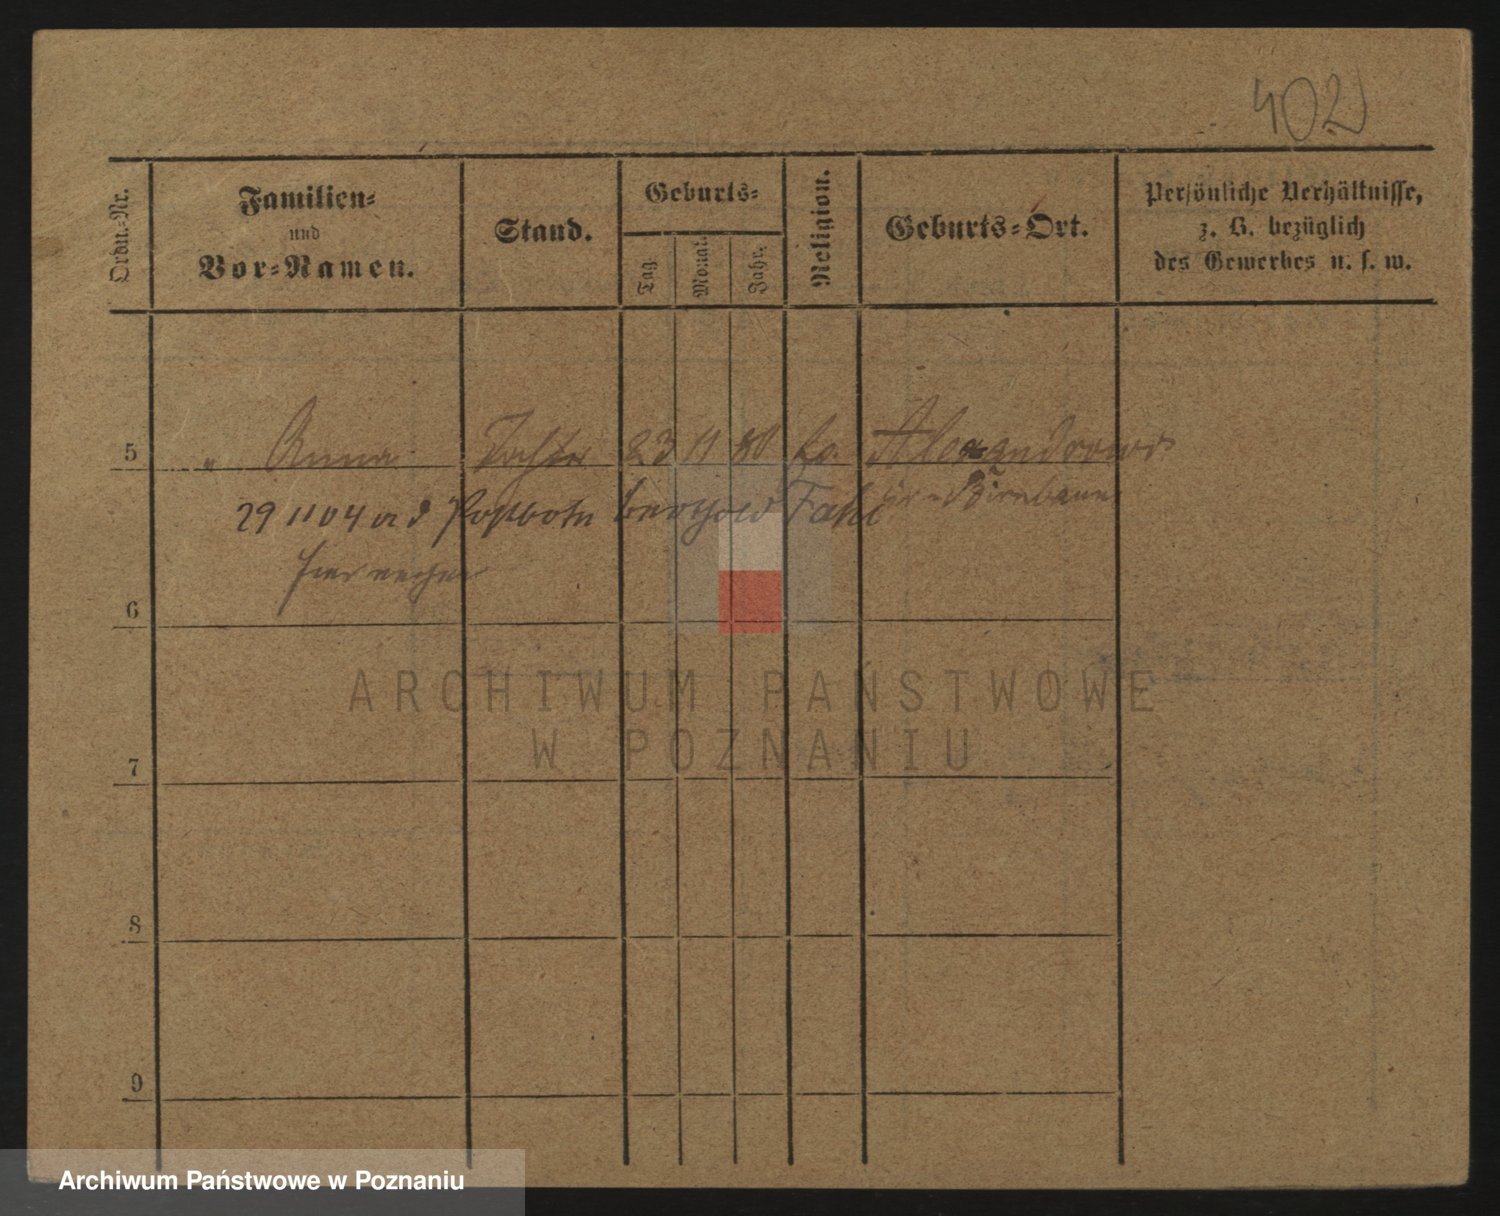 402
Ordn.-Nr.
Familien-
und
Vor-Namen.
Stand.
Geburts-
Tag.
Monat.
Jahr.
Religion.
Geburts-Ort.
Persönliche Verhältnisse,
z. B. bezüglich
des Gewerbes u. s. w.
5 " Anna Tochter 23 11 80 ev. Alexandrowo
Kr. Birnbaum
29 11 04 Postboten Berthold Fahl
hier
6
7
8
9
ARCHIWUM PAŃSTWOWE
W POZNANIU
Archiwum Państwowe w Poznaniu